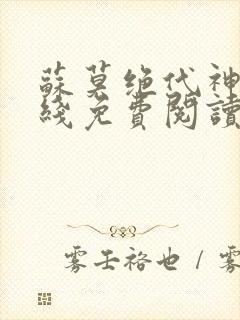 蘇莫绝代神
綫免費閱讀
雾壬裕也 / 雾